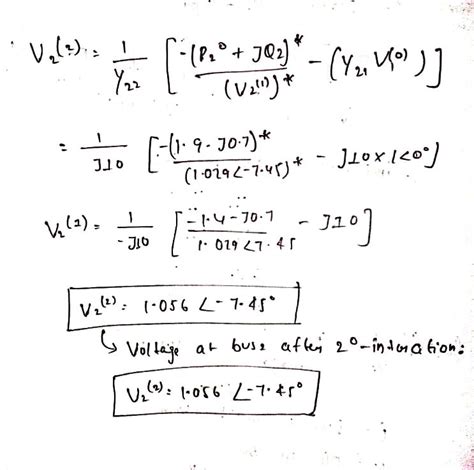 V₂⁽²⁾ = 1/Y₂₂ [ -(P₂⁰ + JQ2)* / (V₂⁽¹⁾)* - (Y₂₁ V₁⁽⁰⁾) ]
= 1/J10 [ -(1.9 - J0.7)* / (1.029∠-7.45)* - J10 x 1<0° ]
V₂(2) = 1/-J10 [ -1.4 - J0.7 / 1.029∠7.45 - J10 ]
V₂⁽²⁾ = 1.056 ∠-7.45°
↳ Voltage at bus2 after 2⁰-interation:
V₂⁽²⁾ = 1.056 ∠-7.45°